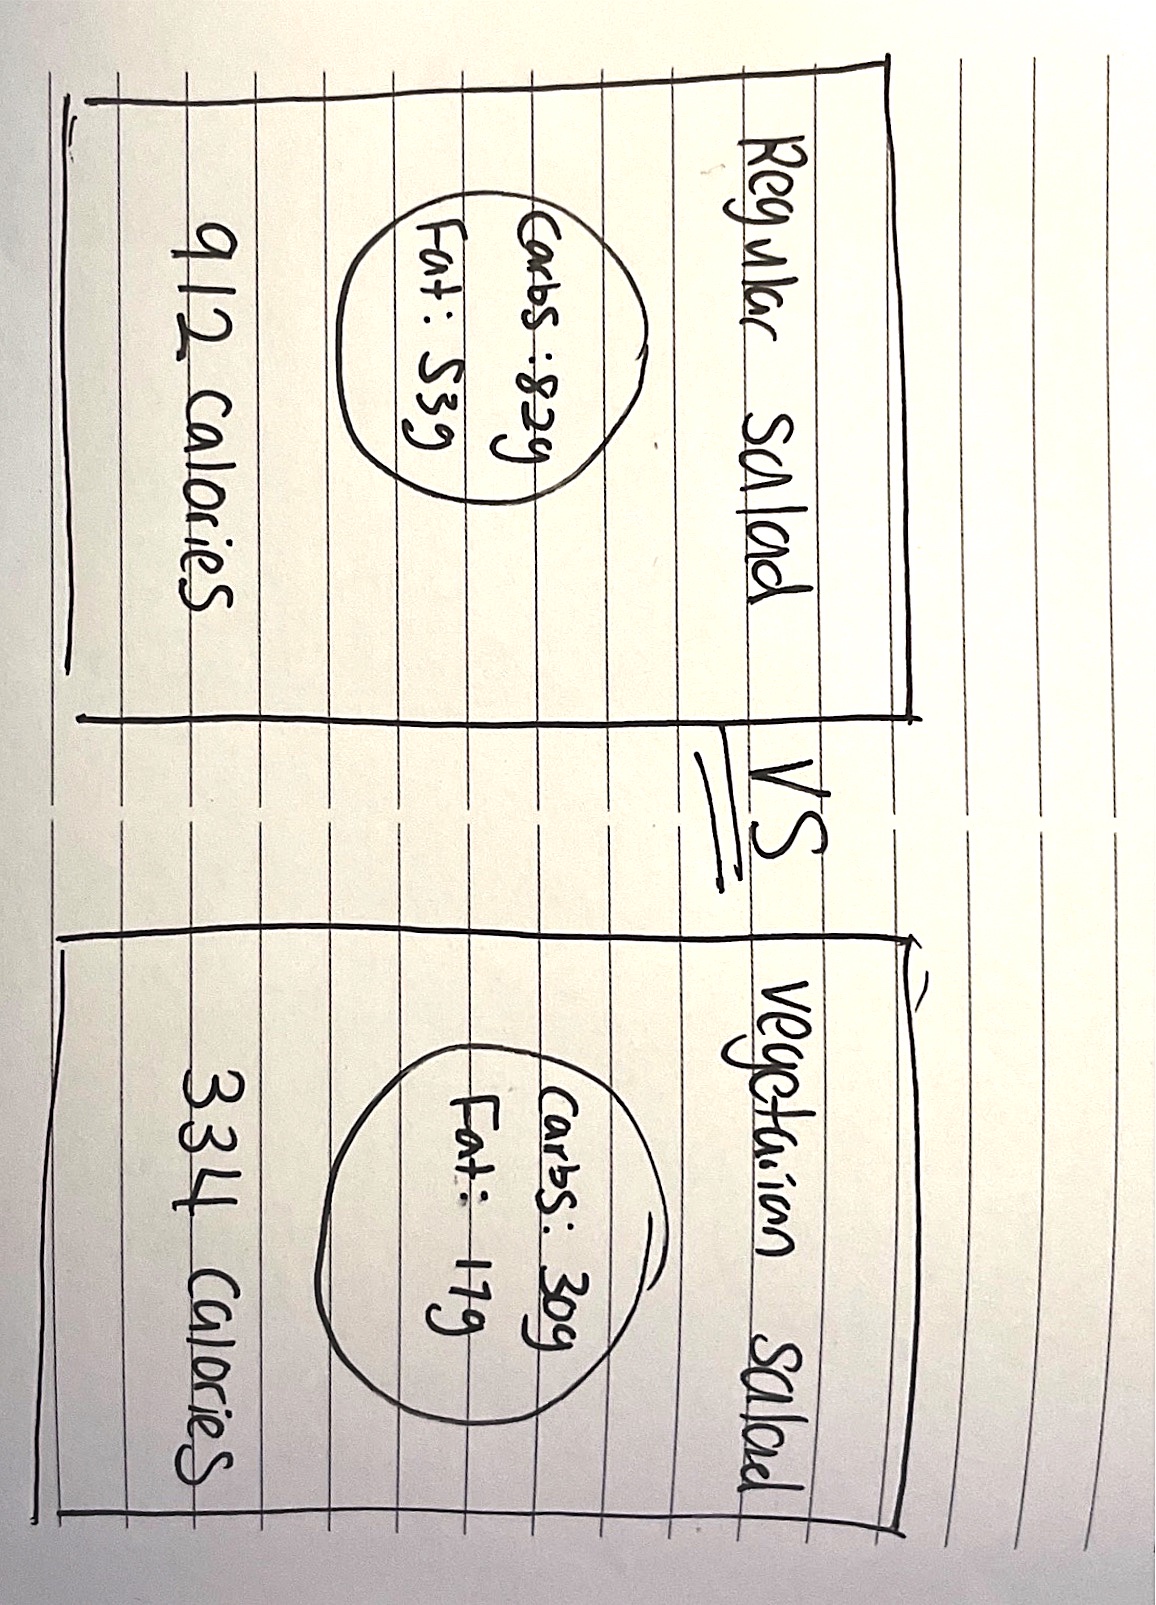 Regular Salad
Carbs: 82g
Fat: 53g
912 Calories
VS
Vegetarian Salad
Carbs: 30g
Fat: 17g
334 Calories